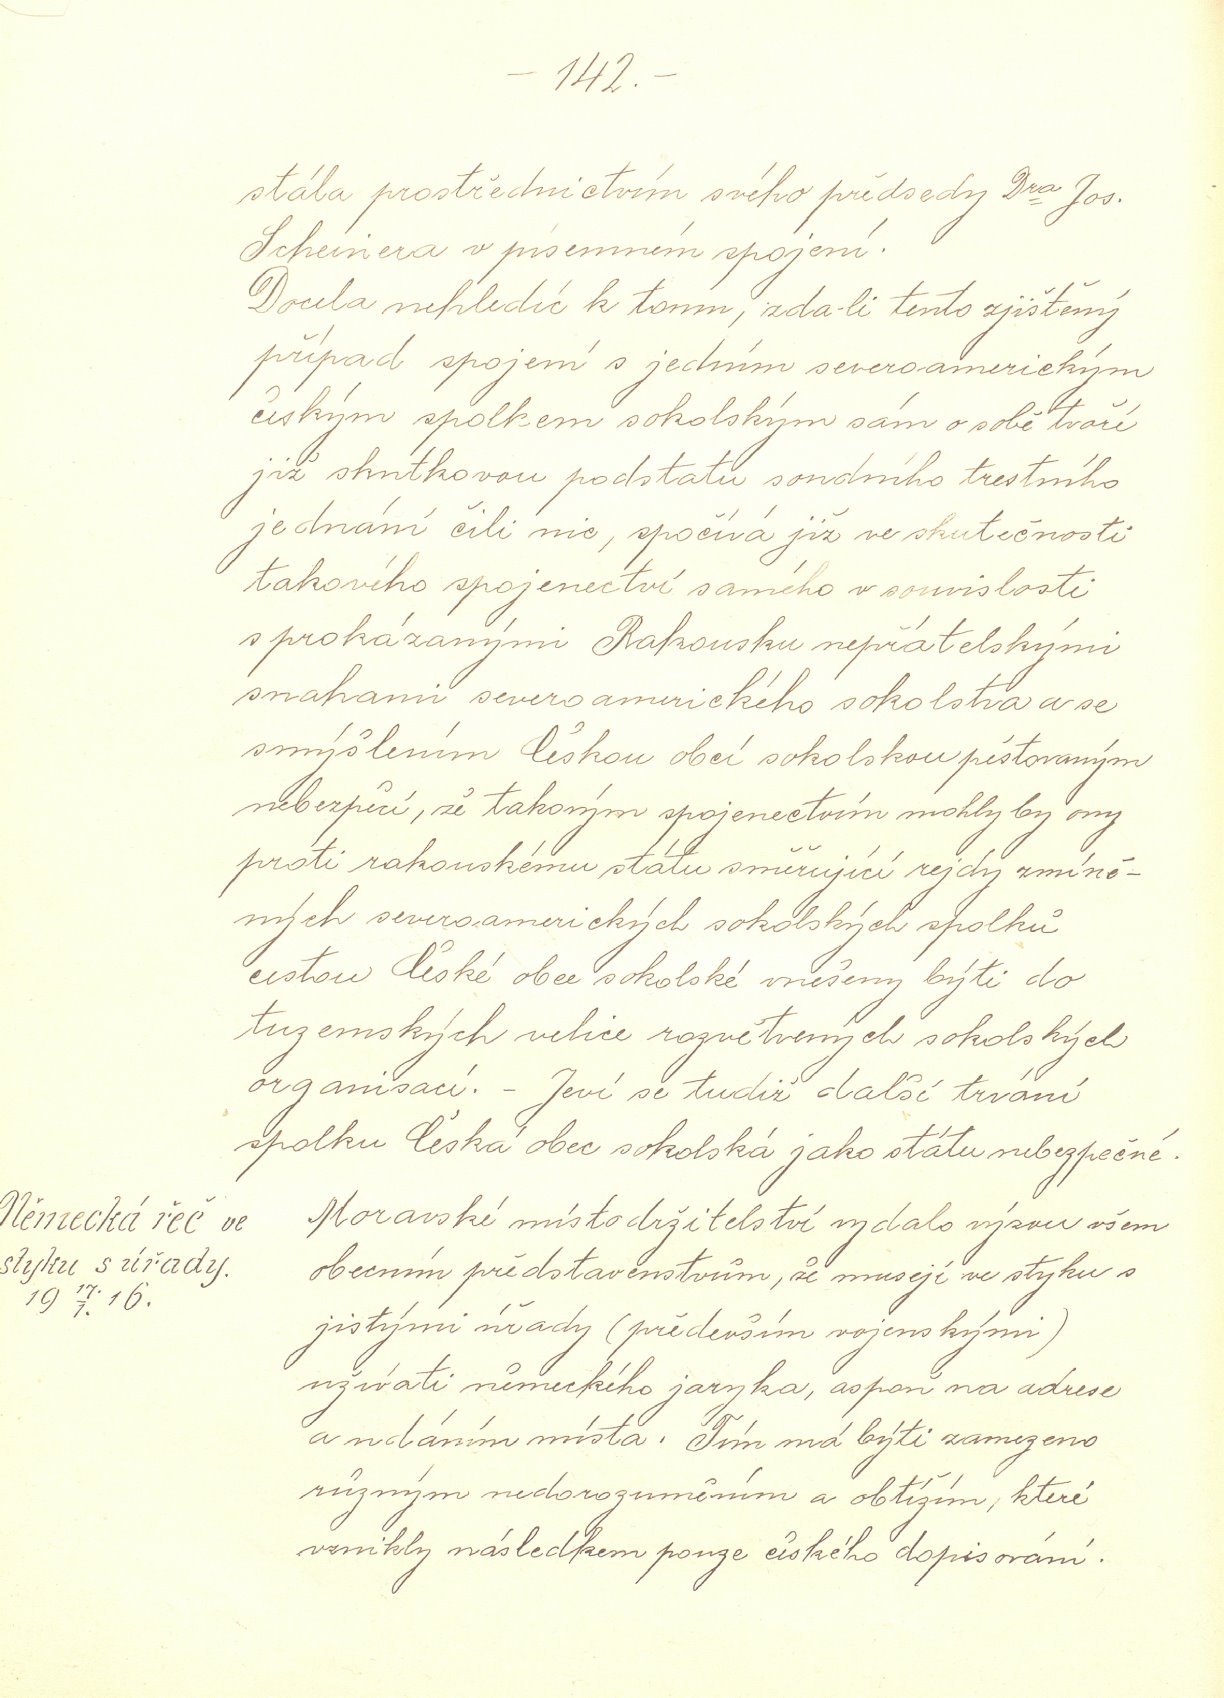 – 142. –
stála prostřednictvím svého předsedy Dra Jos.
Scheinera v písemném spojení.
Docela nehledíc k tomu, zda-li tento zjištěný
případ spojení s jedním severoamerickým
českým spolkem sokolským sám o sobě tvoří
již skutkovou podstatu soudního trestního
jednání čili nic, spočívá již ve skutečnosti
takového spojenectví samého v souvislosti
s prokázanými Rakousku nepřátelskými
snahami severoamerického sokolstva a se
smýšlením Českou obcí sokolskou pěstovaným
nebezpečí, že takovým spojenectvím mohly by ony
proti rakouskému státu směřující rejdy zmíně-
ných severoamerických sokolských spolků
cestou České obce sokolské vnešeny býti do
tuzemských velice rozvětvených sokolských
organisací. – Jeví se tudíž další trvání
spolku Česká obec sokolská jako státu nebezpečné.
Německá řeč ve
styku s úřady.
19 17./7. 16.
Moravské místodržitelství vydalo výzvu všem
obecním představenstvům, že musejí ve styku s
jistými úřady (především vojenskými)
užívati německého jazyka, aspoň na adrese
a udáním místa. Tím má býti zamezeno
různým nedorozuměním a obtížím, které
vznikly následkem pouze českého dopisování.